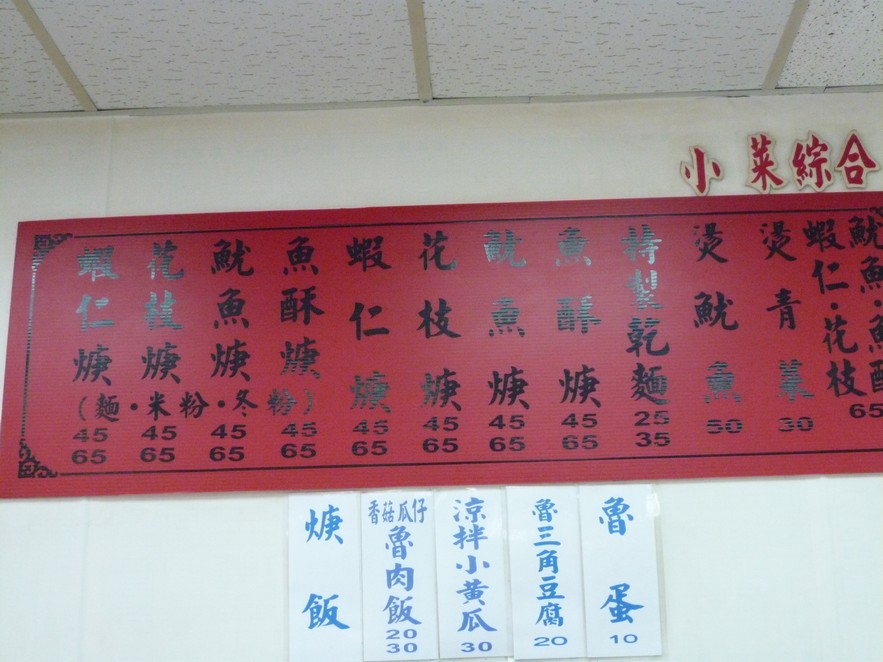 小菜綜合
魷魚·魚酥
蝦仁·花枝
65
燙青菜
30
燙魷魚
50
特製乾麵
25
35
魚酥焿
45
65
魷魚焿
45
65
花枝焿
45
65
蝦仁焿
45
65
魚酥焿
45
65
魷魚焿
45
65
花枝焿
45
65
蝦仁焿
45
65
（麵·米粉·冬粉）
魯蛋
10
魯三角豆腐
20
涼拌小黃瓜
30
香菇瓜仔
魯肉飯
20
30
焿飯